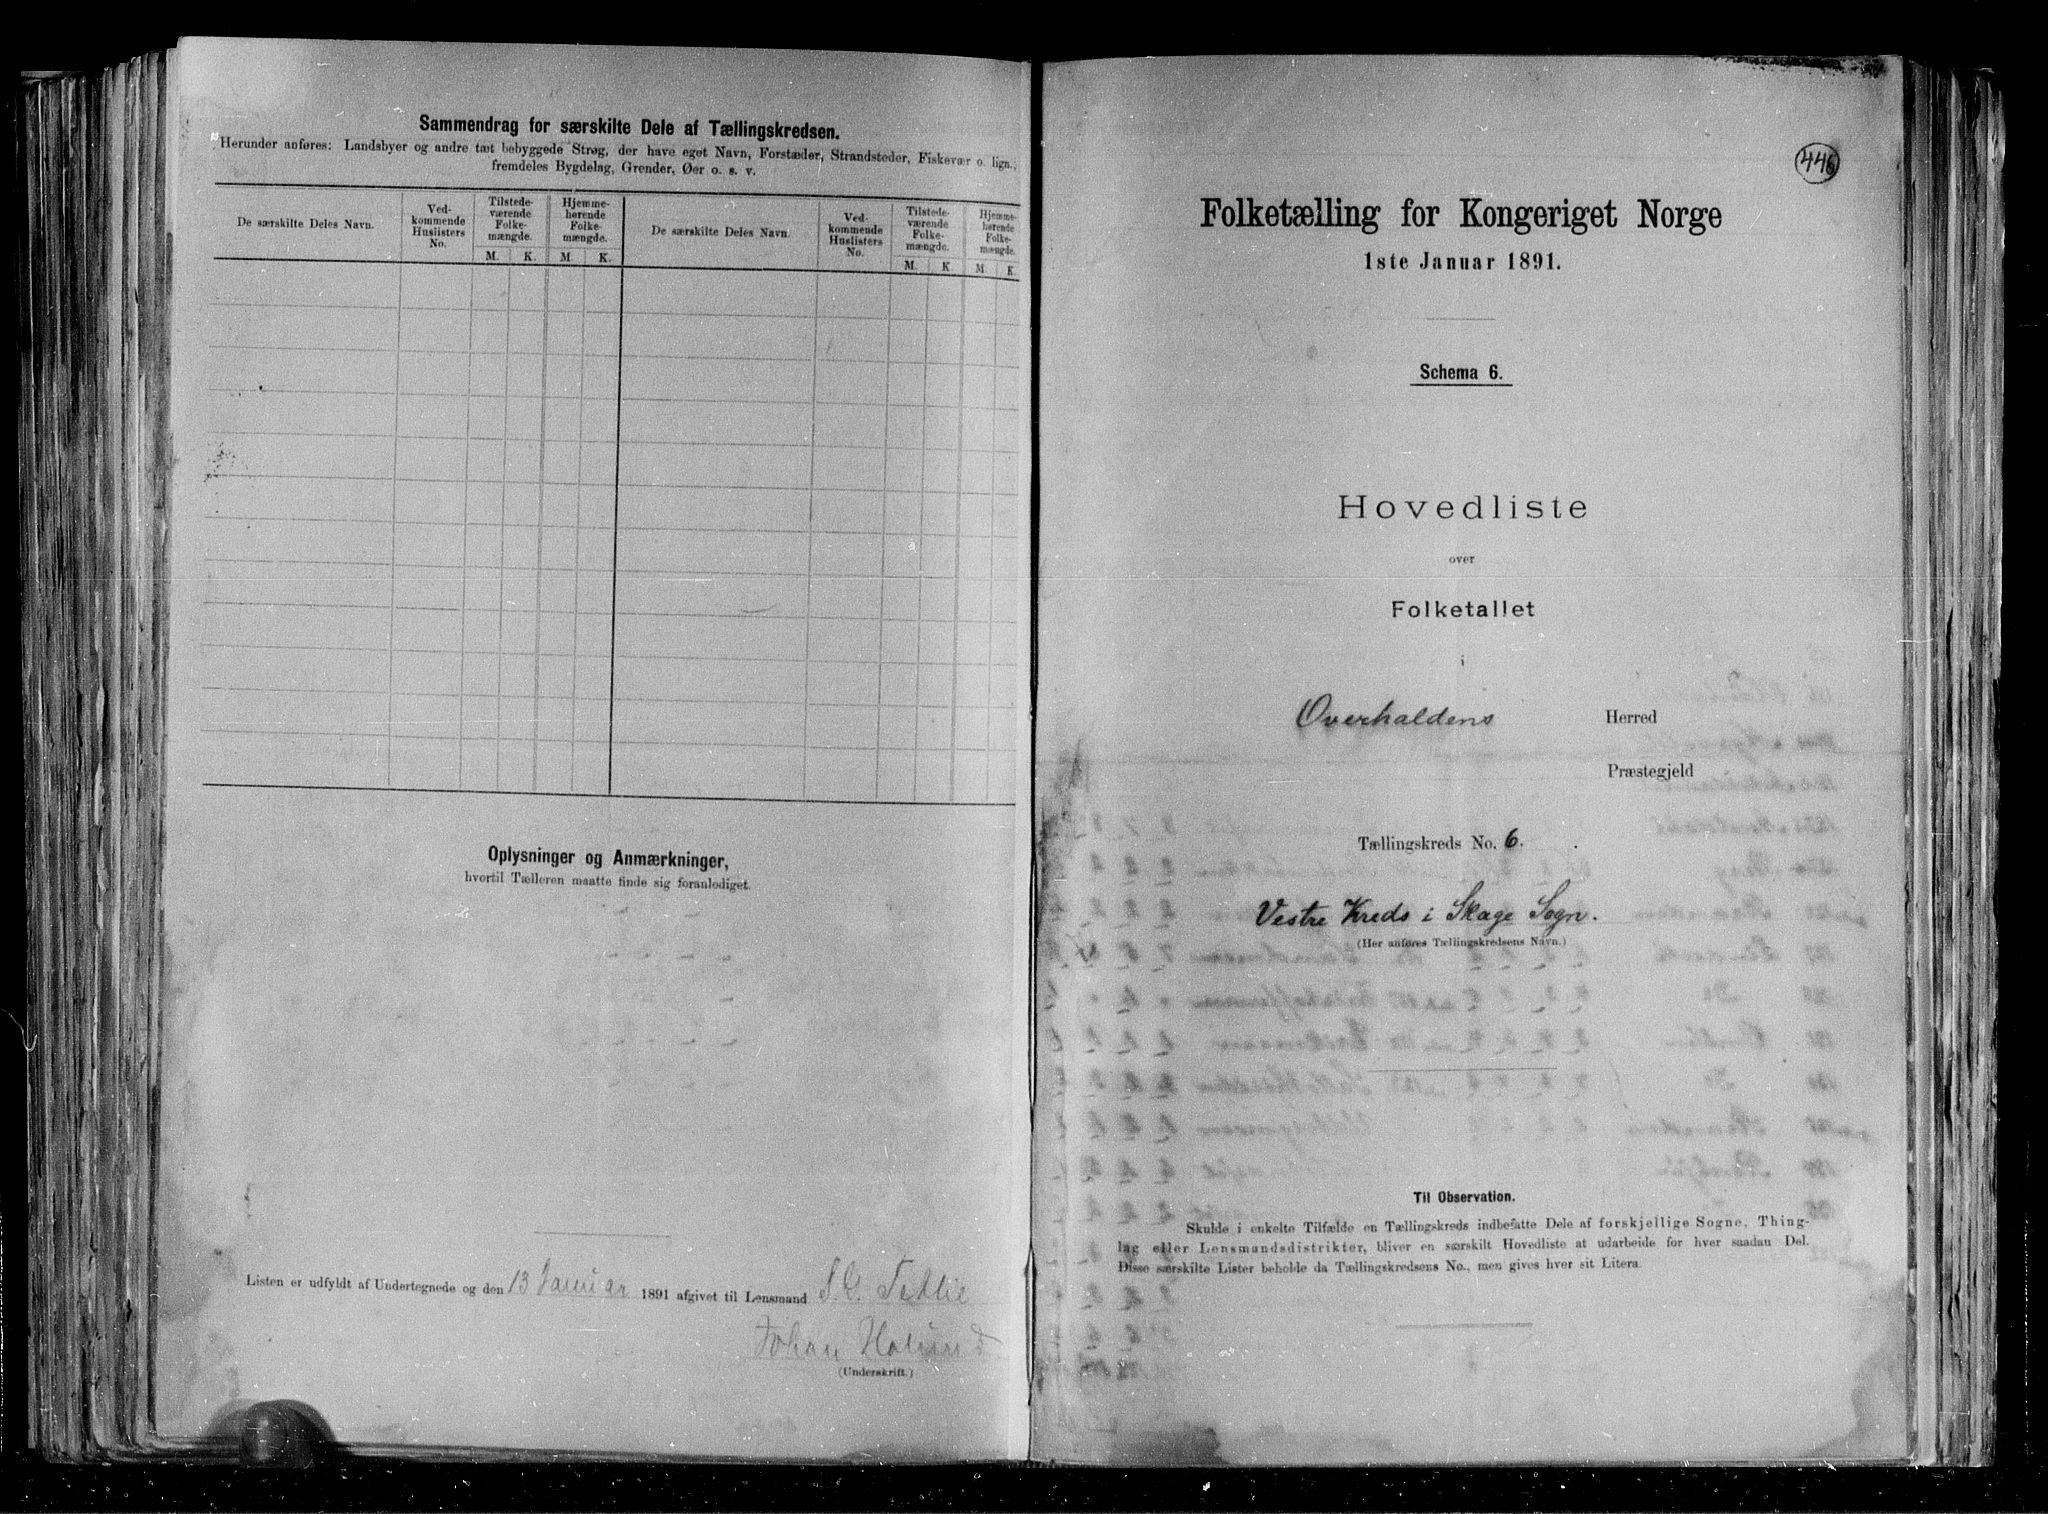 Sammendrag for særskilte Dele af Tællingskredsen.
Herunder anføres: Landsbyer og andre tæt bebyggede Strøg, der have eget Navn, Forstæder, Strandsteder, Fiskevær o. lign.;
fremdeles Bygdelag, Grender, Øer o. s. v.
De særskilte Deles Navn.
Ved-
kommende
Huslisters
No.
Tilstede-
værende
Folke-
mængde.
Hjemme-
hørende
Folke-
mængde.
M. K. M. K.
De særskilte Deles Navn.
Ved-
kommende
Huslisters
No.
Tilstede-
værende
Folke-
mængde.
Hjemme-
hørende
Folke-
mængde.
M. K. M. K.
Oplysninger og Anmærkninger,
hvortil Tælleren maatte finde sig foranlediget.
Listen er udfyldt af Undertegnede og den 13 Januar 1891 afgivet til Lensmand
Johan
(Underskrift.)
446
Folketælling for Kongeriget Norge
1ste Januar 1891.
Schema 6.
Hovedliste
over
Folketallet
i
Overhaldens Herred
Præstegjeld
Tællingskreds No. 6.
Vestre Kreds i Skage Sogn.
(Her anføres Tællingskredsens Navn.)
Til Observation.
Skulde i enkelte Tilfælde en Tællingskreds indbefatte Dele af forskjellige Sogne, Thing-
lag eller Lensmandsdistrikter, bliver en særskilt Hovedliste at udarbeide for hver saadan Del.
Disse særskilte Lister beholde da Tællingskredsens No., men gives hver sit Litera.